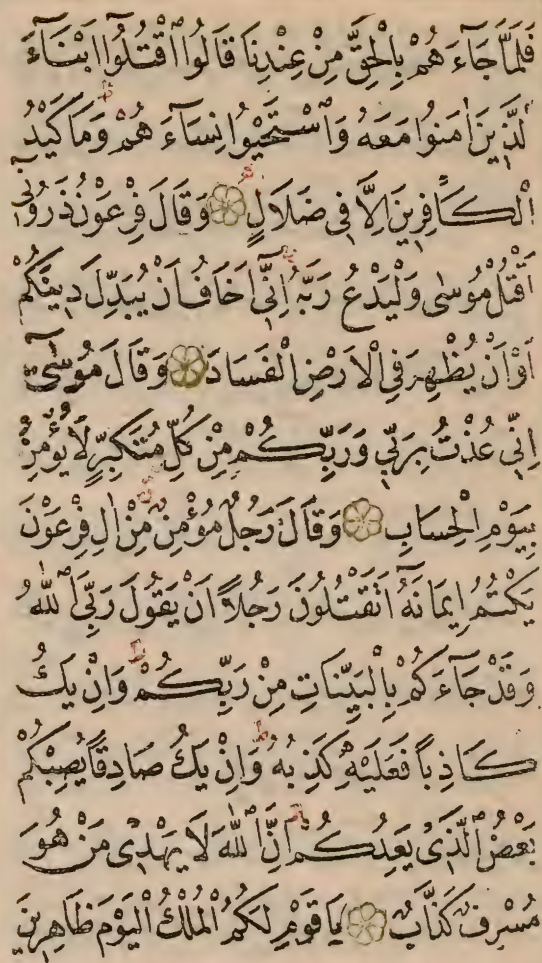 فَلَمَّا جَاءَهُمْ بِالْحَقِّ مِنْ عِنْدِنَا قَالُوا اقْتُلُوا ابْنَاءَ
الَّذِينَ اٰمَنُوا مَعَهُ وَاسْتَحْيُوا نِسَاءَ هُمْ وَمَا كَيْدُ
الْكَافِرِينَ اِلَّا فِي ضَلَالٍ وَقَالَ فِرْعَوْنُ ذَرُونِي
اَقْتُلْ مُوسٰى وَلْيَدْعُ رَبَّهُ اِنِّي اَخَافُ اَنْ يُبَدِّلَ دِينَكُمْ
اَوْ اَنْ يُظْهِرَ فِي الْاَرْضِ الْفَسَادَ وَقَالَ مُوسٰى
اِنِّي عُذْتُ بِرَبِّي وَرَبِّكُمْ مِنْ كُلِّ مُتَكَبِّرٍ لَا يُؤْمِنُ
بِيَوْمِ الْحِسَابِ وَقَالَ رَجُلٌ مُؤْمِنٌ مِنْ اٰلِ فِرْعَوْنَ
يَكْتُمُ اِيمَانَهُ اَتَقْتُلُونَ رَجُلاً اَنْ يَقُولَ رَبِّيَ اللّٰهُ
وَقَدْ جَاءَكُمْ بِالْبَيِّنَاتِ مِنْ رَبِّكُمْ وَاِنْ يَكُ
كَاذِباً فَعَلَيْهِ كَذِبُهُ وَاِنْ يَكُ صَادِقًا يُصِبْكُمْ
بَعْضُ الَّذِي يَعِدُكُمْ اِنَّ اللّٰهَ لَا يَهْدِى مَنْ هُوَ
مُسْرِفٌ كَذَّابٌ يَا قَوْمِ لَكُمُ الْمُلْكُ الْيَوْمَ ظَاهِرِينَ